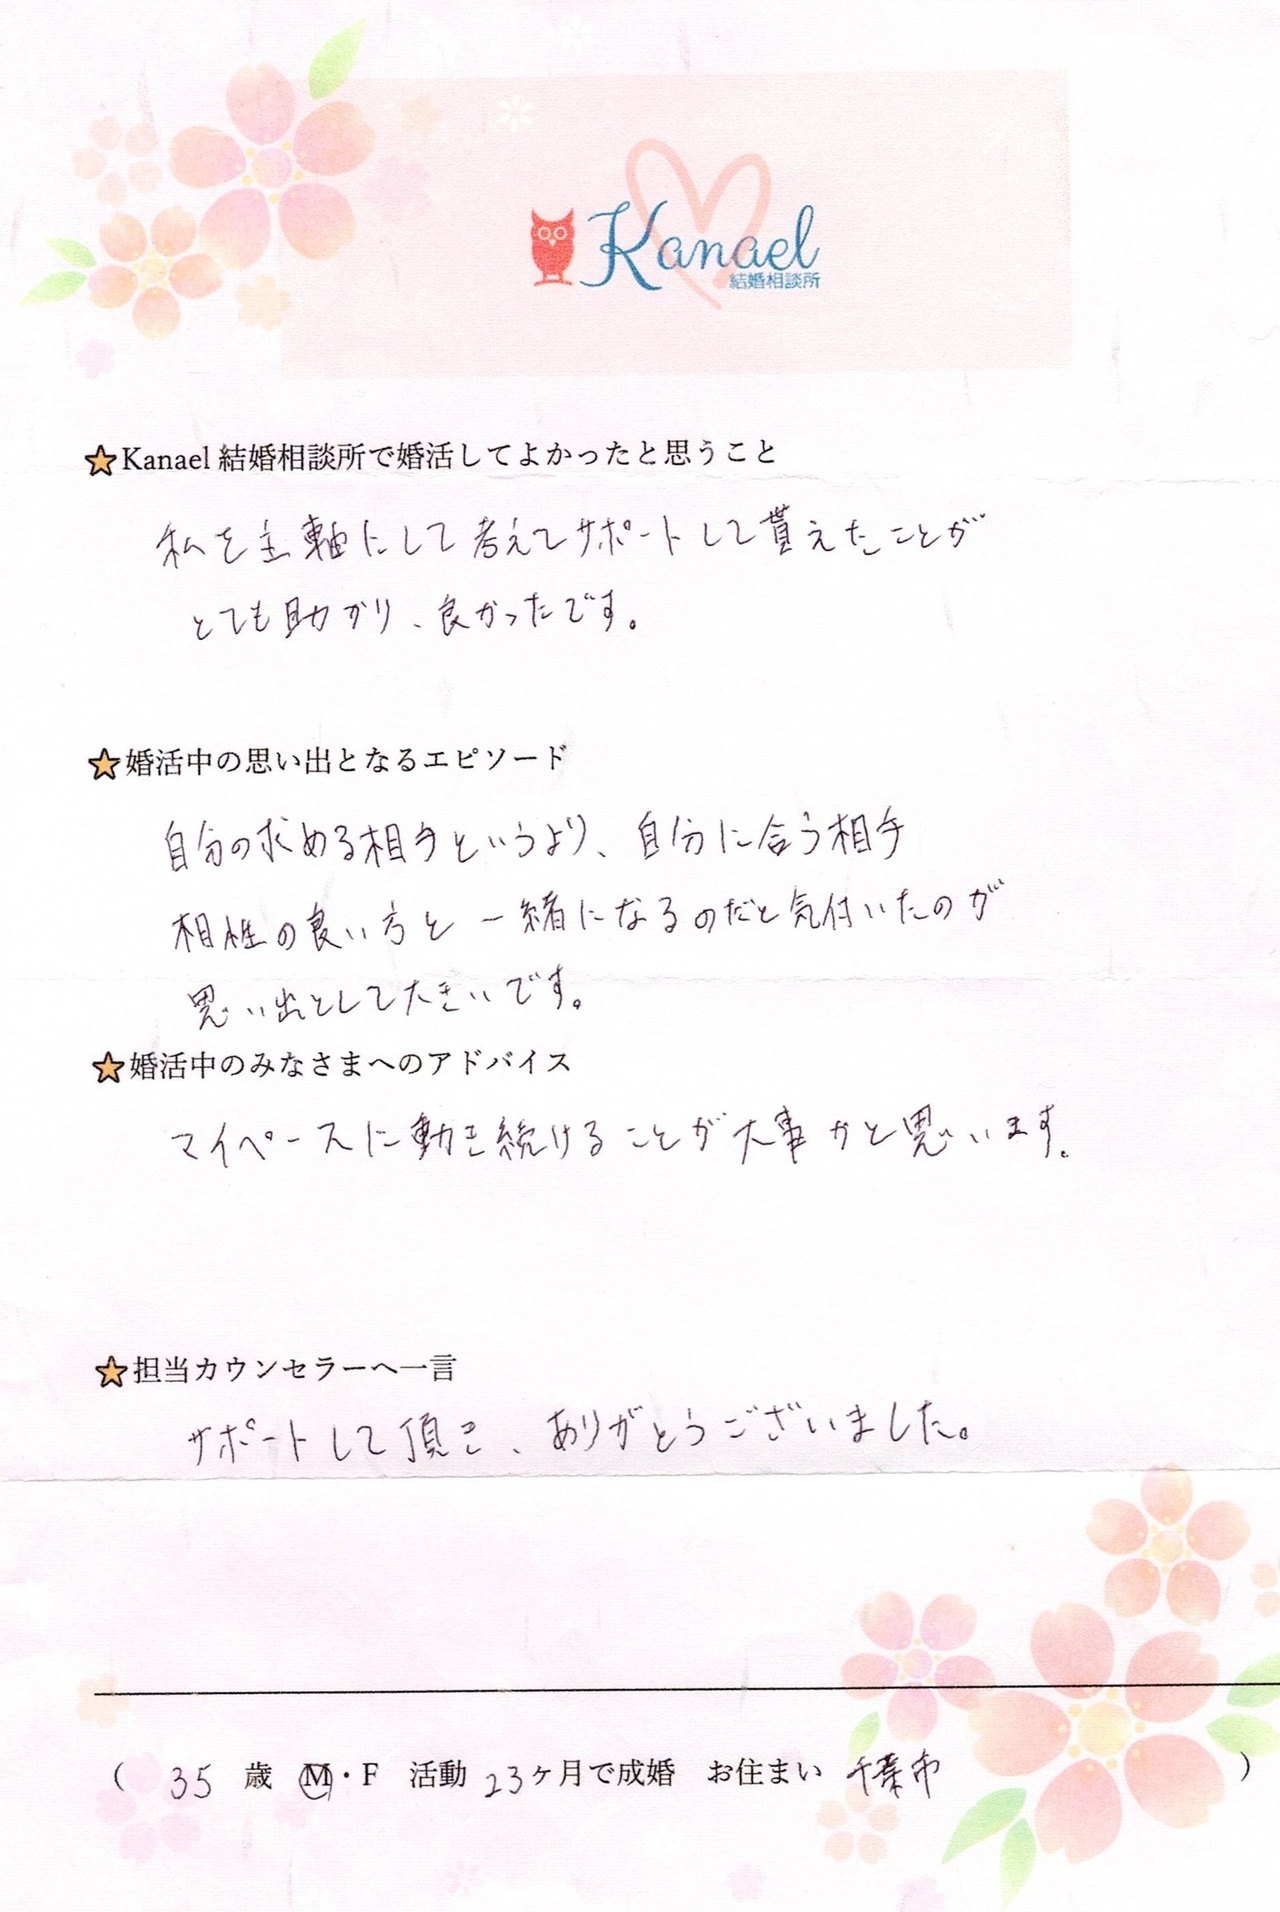 Kanael
結婚相談所
Kanael 結婚相談所で婚活してよかったと思うこと
私を主軸にして考えてサポートして貰えたことが
とても助かり、良かったです。
婚活中の思い出となるエピソード
自分の求める相手というより、自分に合う相手
相性の良い方と一緒になるのだと気付いたのが
思い出として大きいです。
婚活中のみなさまへのアドバイス
マイペースに動き続けることが大事かと思います。
担当カウンセラーへ一言
サポートして頂き、ありがとうございました。
( 35 歳 M・F 活動 23ヶ月で成婚 お住まい 千葉市 )